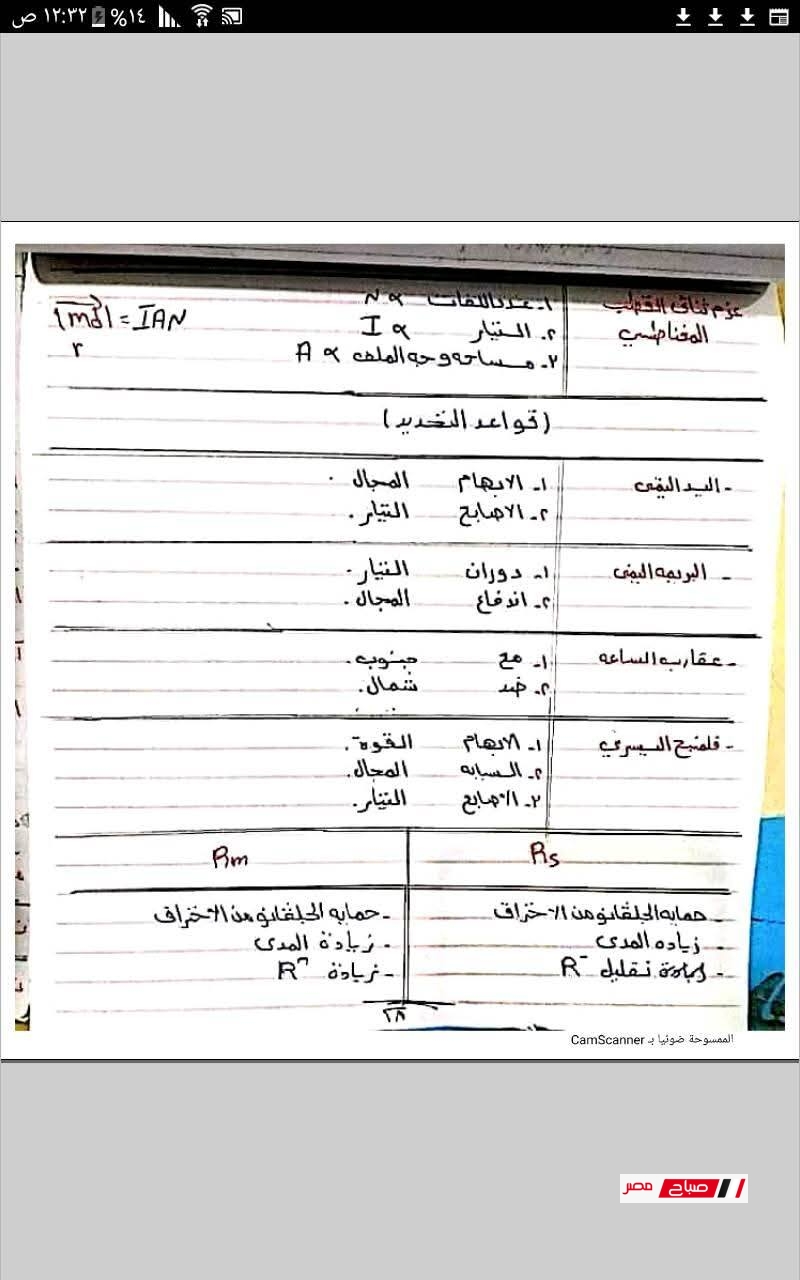 ١٢:٣٢ ص ١٤%
عزم ثنائى القطب
المغناطيسي
١- عدد اللفات N ∝
٢- التيار I ∝
٣- مساحه وجه الملف A ∝
|md| = IAN
(قواعد التحديد)
- اليد اليمنى
١- الابهام المجال.
٢- الاصابع التيار.
- البريمه اليمنى
١- دوران التيار.
٢- اندفاع المجال.
- عقارب الساعه
١- مع جنوب.
٢- ضد شمال.
- فلمنج اليسري
١- الابهام القوة.
٢- السبابه المجال.
٣- الاصابع التيار.
Rs
- حمايه الجلڤانو من الاحتراق
- زياده المدى
- تقليل R
Rm
- حمايه الجلڤانو من الاحتراق
- زيادة المدى
- زيادة R
٢٨
الممسوحة ضوئيا بـ CamScanner
صباح مصر